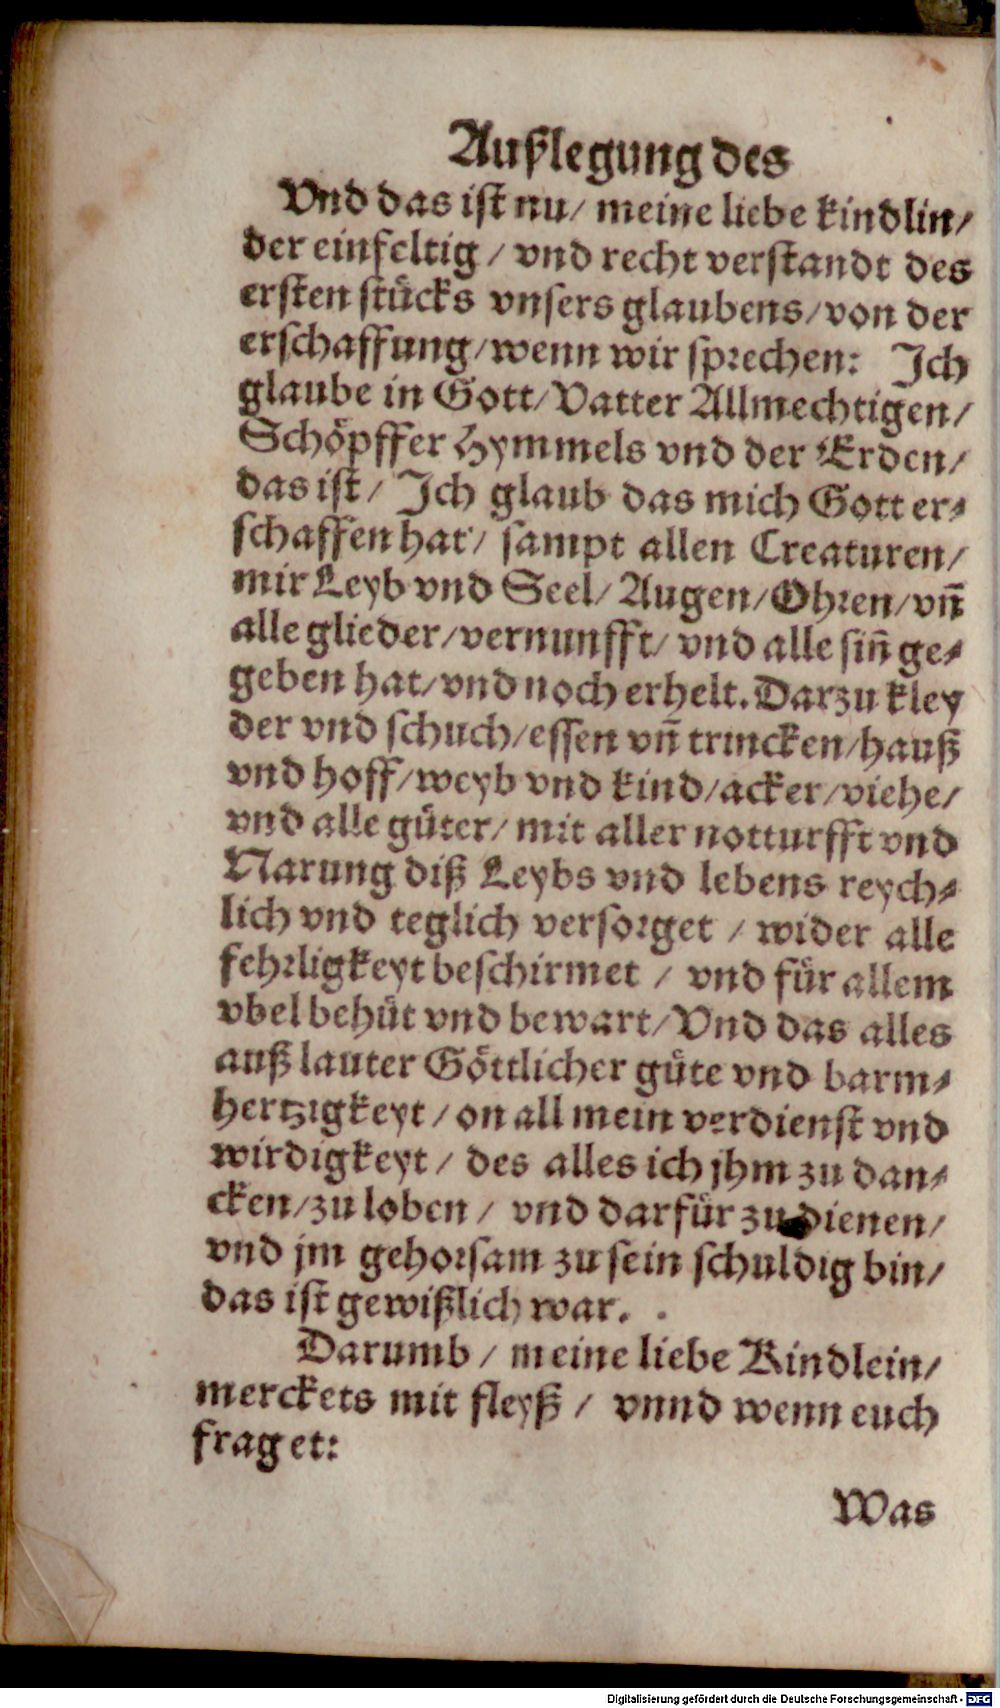 Außlegung des
Vnd das ist nu/ meine liebe kindlin/
der einfeltig / vnd recht verstandt des
ersten stücks vnsers glaubens/von der
erschaffung/wenn wir sprechen: Ich
glaube in Gott/Vatter Allmechtigen/
Schöpffer Hymmels vnd der Erden/
das ist/ Ich glaub das mich Gott er⸗
schaffen hat/ sampt allen Creaturen/
mir Leyb vnd Seel/Augen/Ohren/vñ
alle glieder/vernunfft/ vnd alle siñ ge⸗
geben hat/vnd noch erhelt. Darzu kley
der vnd schuch/essen vñ trincken/hauß
vnd hoff/weyb vnd kind/acker/viehe/
vnd alle güter/ mit aller notturfft vnd
Narung diß Leybs vnd lebens reych⸗
lich vnd teglich versorget / wider alle
fehrligkeyt beschirmet / vnd für allem
vbel behüt vnd bewart/Vnd das alles
auß lauter Göttlicher güte vnd barm⸗
hertzigkeyt/on all mein verdienst vnd
wirdigkeyt/ des alles ich jhm zu dan⸗
cken/zu loben / vnd darfür zu dienen/
vnd jm gehorsam zu sein schuldig bin/
das ist gewißlich war.
Darumb / meine liebe Kindlein/
merckets mit fleyß / vnnd wenn euch
fraget:
Was
Digitalisierung gefördert durch die Deutsche Forschungsgemeinschaft - DFG